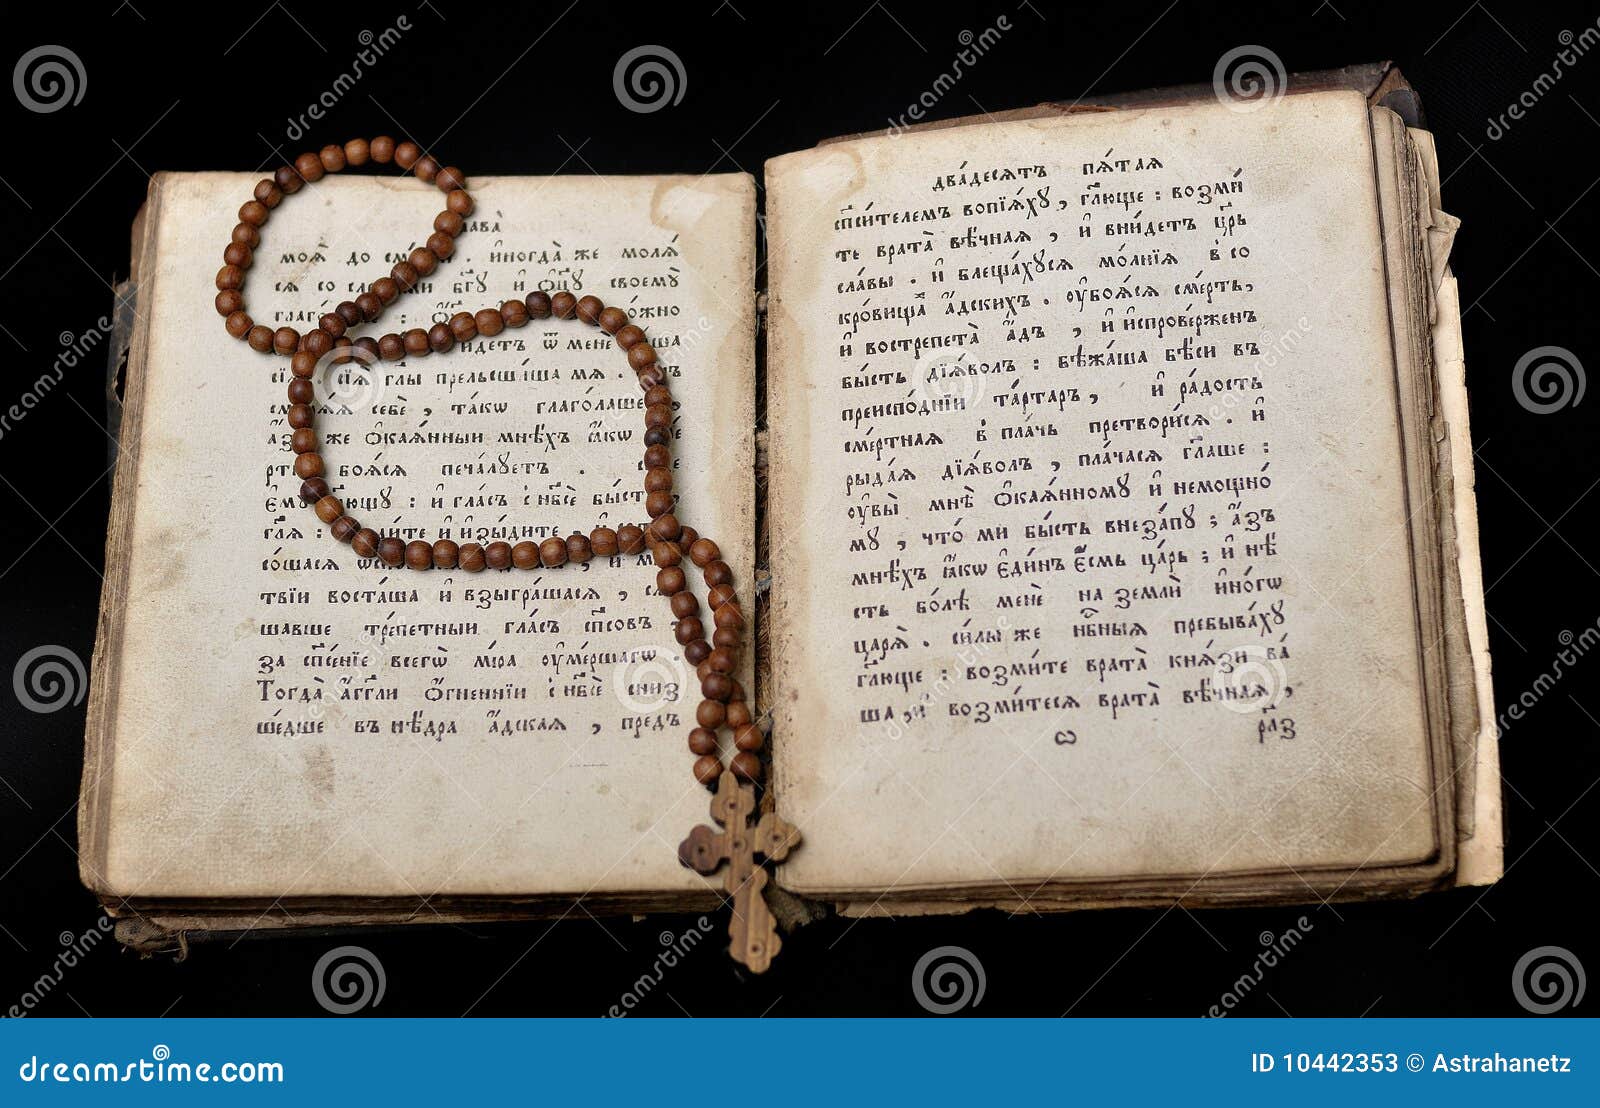 моѧ̀ до см . и҆ногда̀ же молѧ́
сѧ со сле ми бг҃ꙋ и҆ ѻ҆ц҃ꙋ своемꙋ̀
глаго : ожно
идетъ ѿ мене ша
сїѧ̀ . сїѧ̑ гл҃ы прельсти́ша мѧ .
смирѧ́ѧ себѐ , та́кѡ глаго́лаше
а҆́з же ѻ҆каѧ́нныи мнѣ́хъ ꙗ҆́кѡ
рт боѧ́сѧ печа́лꙋетъ .
є҆мꙋ̀ гл҃ющꙋ : и҆ гла́съ с нб҃сѐ бы́сть
гл҃ѧ : и́те и҆ и҆зы́дите , и҆
со́шасѧ , и҆ м
твїи воста́ша и҆ взыгра́шасѧ , сл
шавше тре́петныи гла́съ сп҃совъ .
за сп҃се́нїе всегѡ̀ ми́ра ᲂу҆ме́ршагѡ .
Тогда̀ а҆́гг҃ли ѻ҆́гненнїи с нб҃сѐ сниз
ше́дше въ нѣ́дра а҆́дскаѧ , предъ
два́десѧтъ пѧ́таѧ
сп҃си́телемъ вопїѧ́хꙋ , гл҃юще : возми́
те врата̀ вѣ́чнаѧ , и҆ вни́детъ цр҃ь
сла́вы . и҆ блеща́хꙋсѧ мо́лнїѧ в со
кро́вища а҆́дскихъ . ᲂу҆боѧ́сѧ сме́рть,
и҆ вострепета̀ а҆́дъ , и҆ и҆спрове́рженъ
бы́сть дїѧ́волъ : бѣжа́ша бѣ́си въ
преиспо́днїи та́ртаръ , и҆ ра́дость
сме́ртнаѧ в пла́чь претвори́сѧ . и҆
рыда́ѧ дїѧ́волъ , пла́часѧ гл҃аше :
ᲂу҆вы̀ мнѣ̀ ѻ҆каѧ́нномꙋ и҆ немощно́
мꙋ , что́ ми бы́сть внеза́пꙋ ; а҆́зъ
мнѣ́хъ ꙗ҆́кѡ є҆ди́нъ є҆́смь ца́рь ; и҆ нѣ́
сть бо́лѣ менѐ на землѝ и҆но́гѡ
царѧ̀ . си́лы же нб҃ныѧ пребыва́хꙋ
гл҃юще : возми́те врата̀ кнѧ́зи ва́
ша , и҆ возми́тесѧ врата̀ вѣ́чнаѧ ,
ѡ
рл҃з
dreamstime.com
ID 10442353 © Astrahanetz